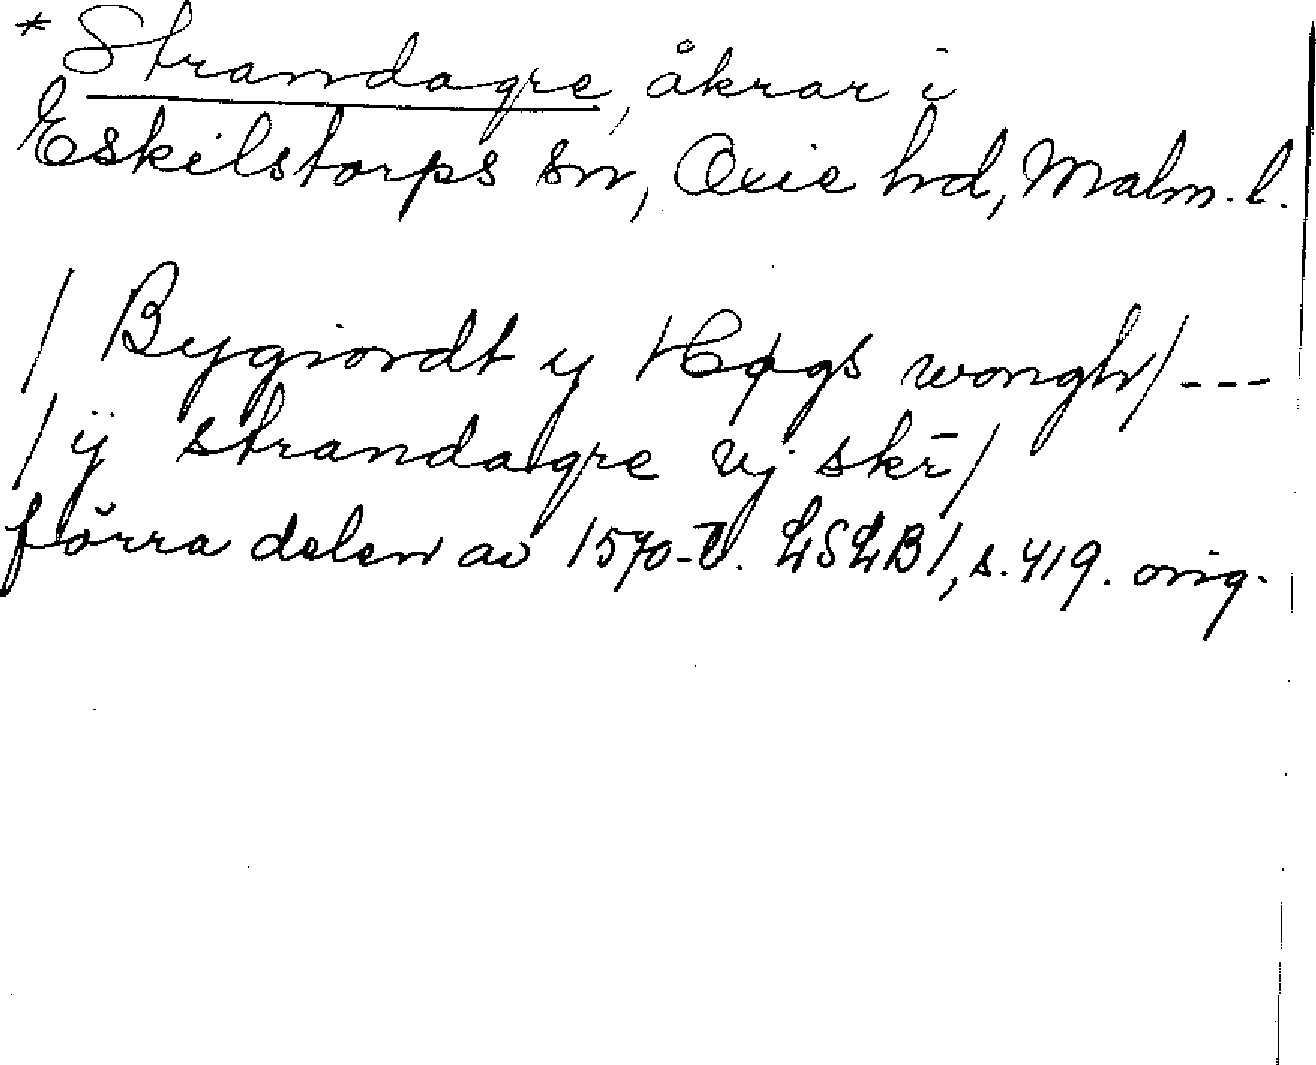 * Strandagre, åkrar i
Eskilstorps sn, Oxie hd, Malm. l.
/ Bygiordt y Høgs wongh/ ---
/ ij strandagre vj skr̄/
förra delen av 1570-t. LSLB1, s. 419. orig.